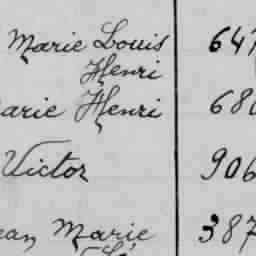 Marie Louis 647
Henri
arie Henri 680
Victor 906
ean Marie 387